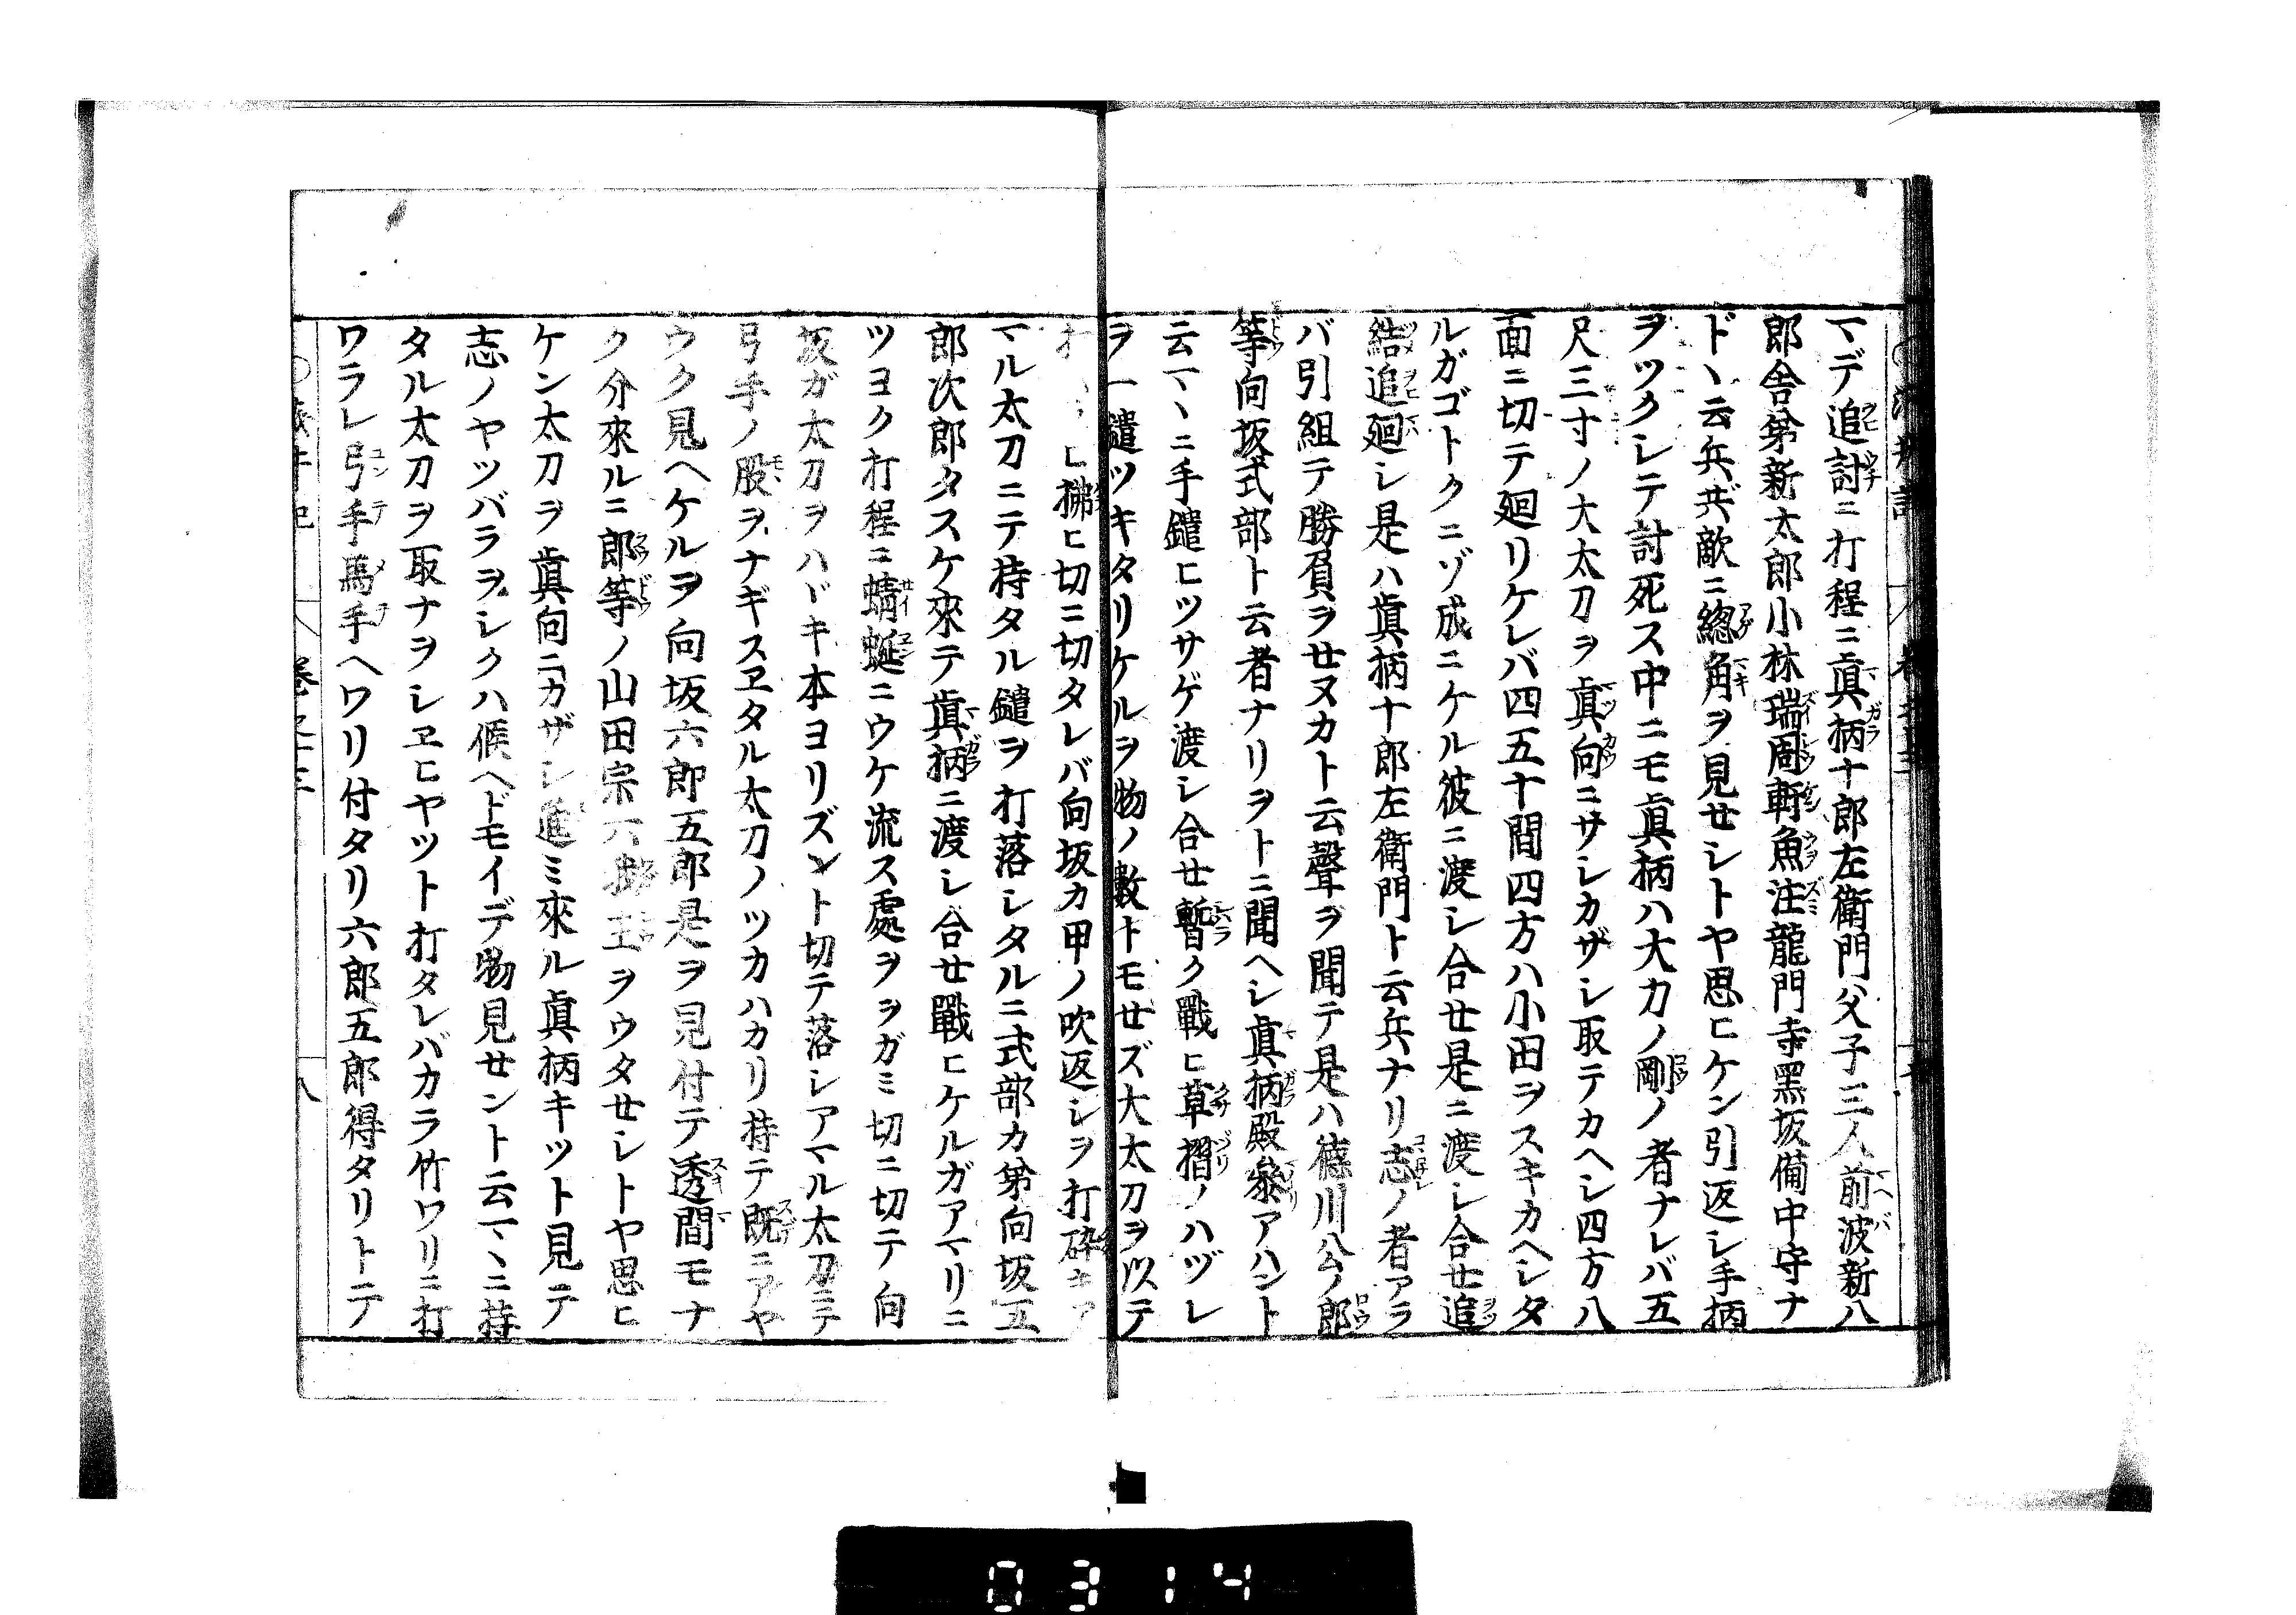 マデ追討ニ打程ニ眞柄十郎左衛門父子三人前波新八
郎舎弟新太郎小林瑞周軒魚注龍門寺黒坂備中守ナ
ドヽ云兵共敵ニ總角ヲ見せシトヤ思ヒケン引返シ手柄
ヲツクシテ討死ス中ニモ眞柄ハ大力ノ剛ノ者ナレバ五
尺三寸ノ大太刀ヲ眞向ニサシカザシ取テカヘシ四方八
面ニ切テ廻リケレバ四五十間四方ハ小田ヲスキカヘシタ
ルガゴトクニゾ成ニケル彼ニ渡シ合せ是ニ渡シ合せ追
結追廻シ是ハ眞柄十郎左衛門ト云兵ナリ志ノ者アラ
バ引組テ勝負ヲせヌカト云聲ヲ聞テ是ハ德川公ノ郎
等向坂式部ト云者ナリヲトニ聞ヘシ眞柄殿參アハント
云マヽニ手鑓ヒツサゲ渡シ合せ暫ク戰ヒ草摺ノハヅレ
ヲ一鑓ツキタリケルヲ物ノ數トモせズ大太刀ヲ以テ
ヒ拂ヒ切ニ切タレバ向坂カ甲ノ吹返シヲ打碎キア
マル太刀ニテ持タル鑓ヲ打落シタルニ式部カ弟向坂五
郎次郎タスケ來テ眞柄ニ渡シ合せ戰ヒケルガアマリニ
ツヨク打程ニ蜻蜒ニウケ流ス處ヲヲガミ切ニ切テ向
坂ガ太刀ヲハヾキ本ヨリズント切テ落シアマル太刀ニテ
弓手ノ股ヲナギスヱタル太刀ノツカハカリ持テ既ニアヤ
ウク見ヘケルヲ向坂六郎五郎是ヲ見付テ透間モナ
ク分來ルニ郎等ノ山田宗六主ヲウタせシトヤ思ヒ
ケン太刀ヲ眞向ニカザシ進ミ來ル眞柄キット見テ
志ノヤツバラヲシクハ候ヘドモイデ物見せント云マヽニ持
タル太刀ヲ取ナヲシヱヒヤット打タレバカラ竹ワリニ打
ワラレ弓手馬手ヘワリ付タリ六郎五郎得タリトテ
八
0314